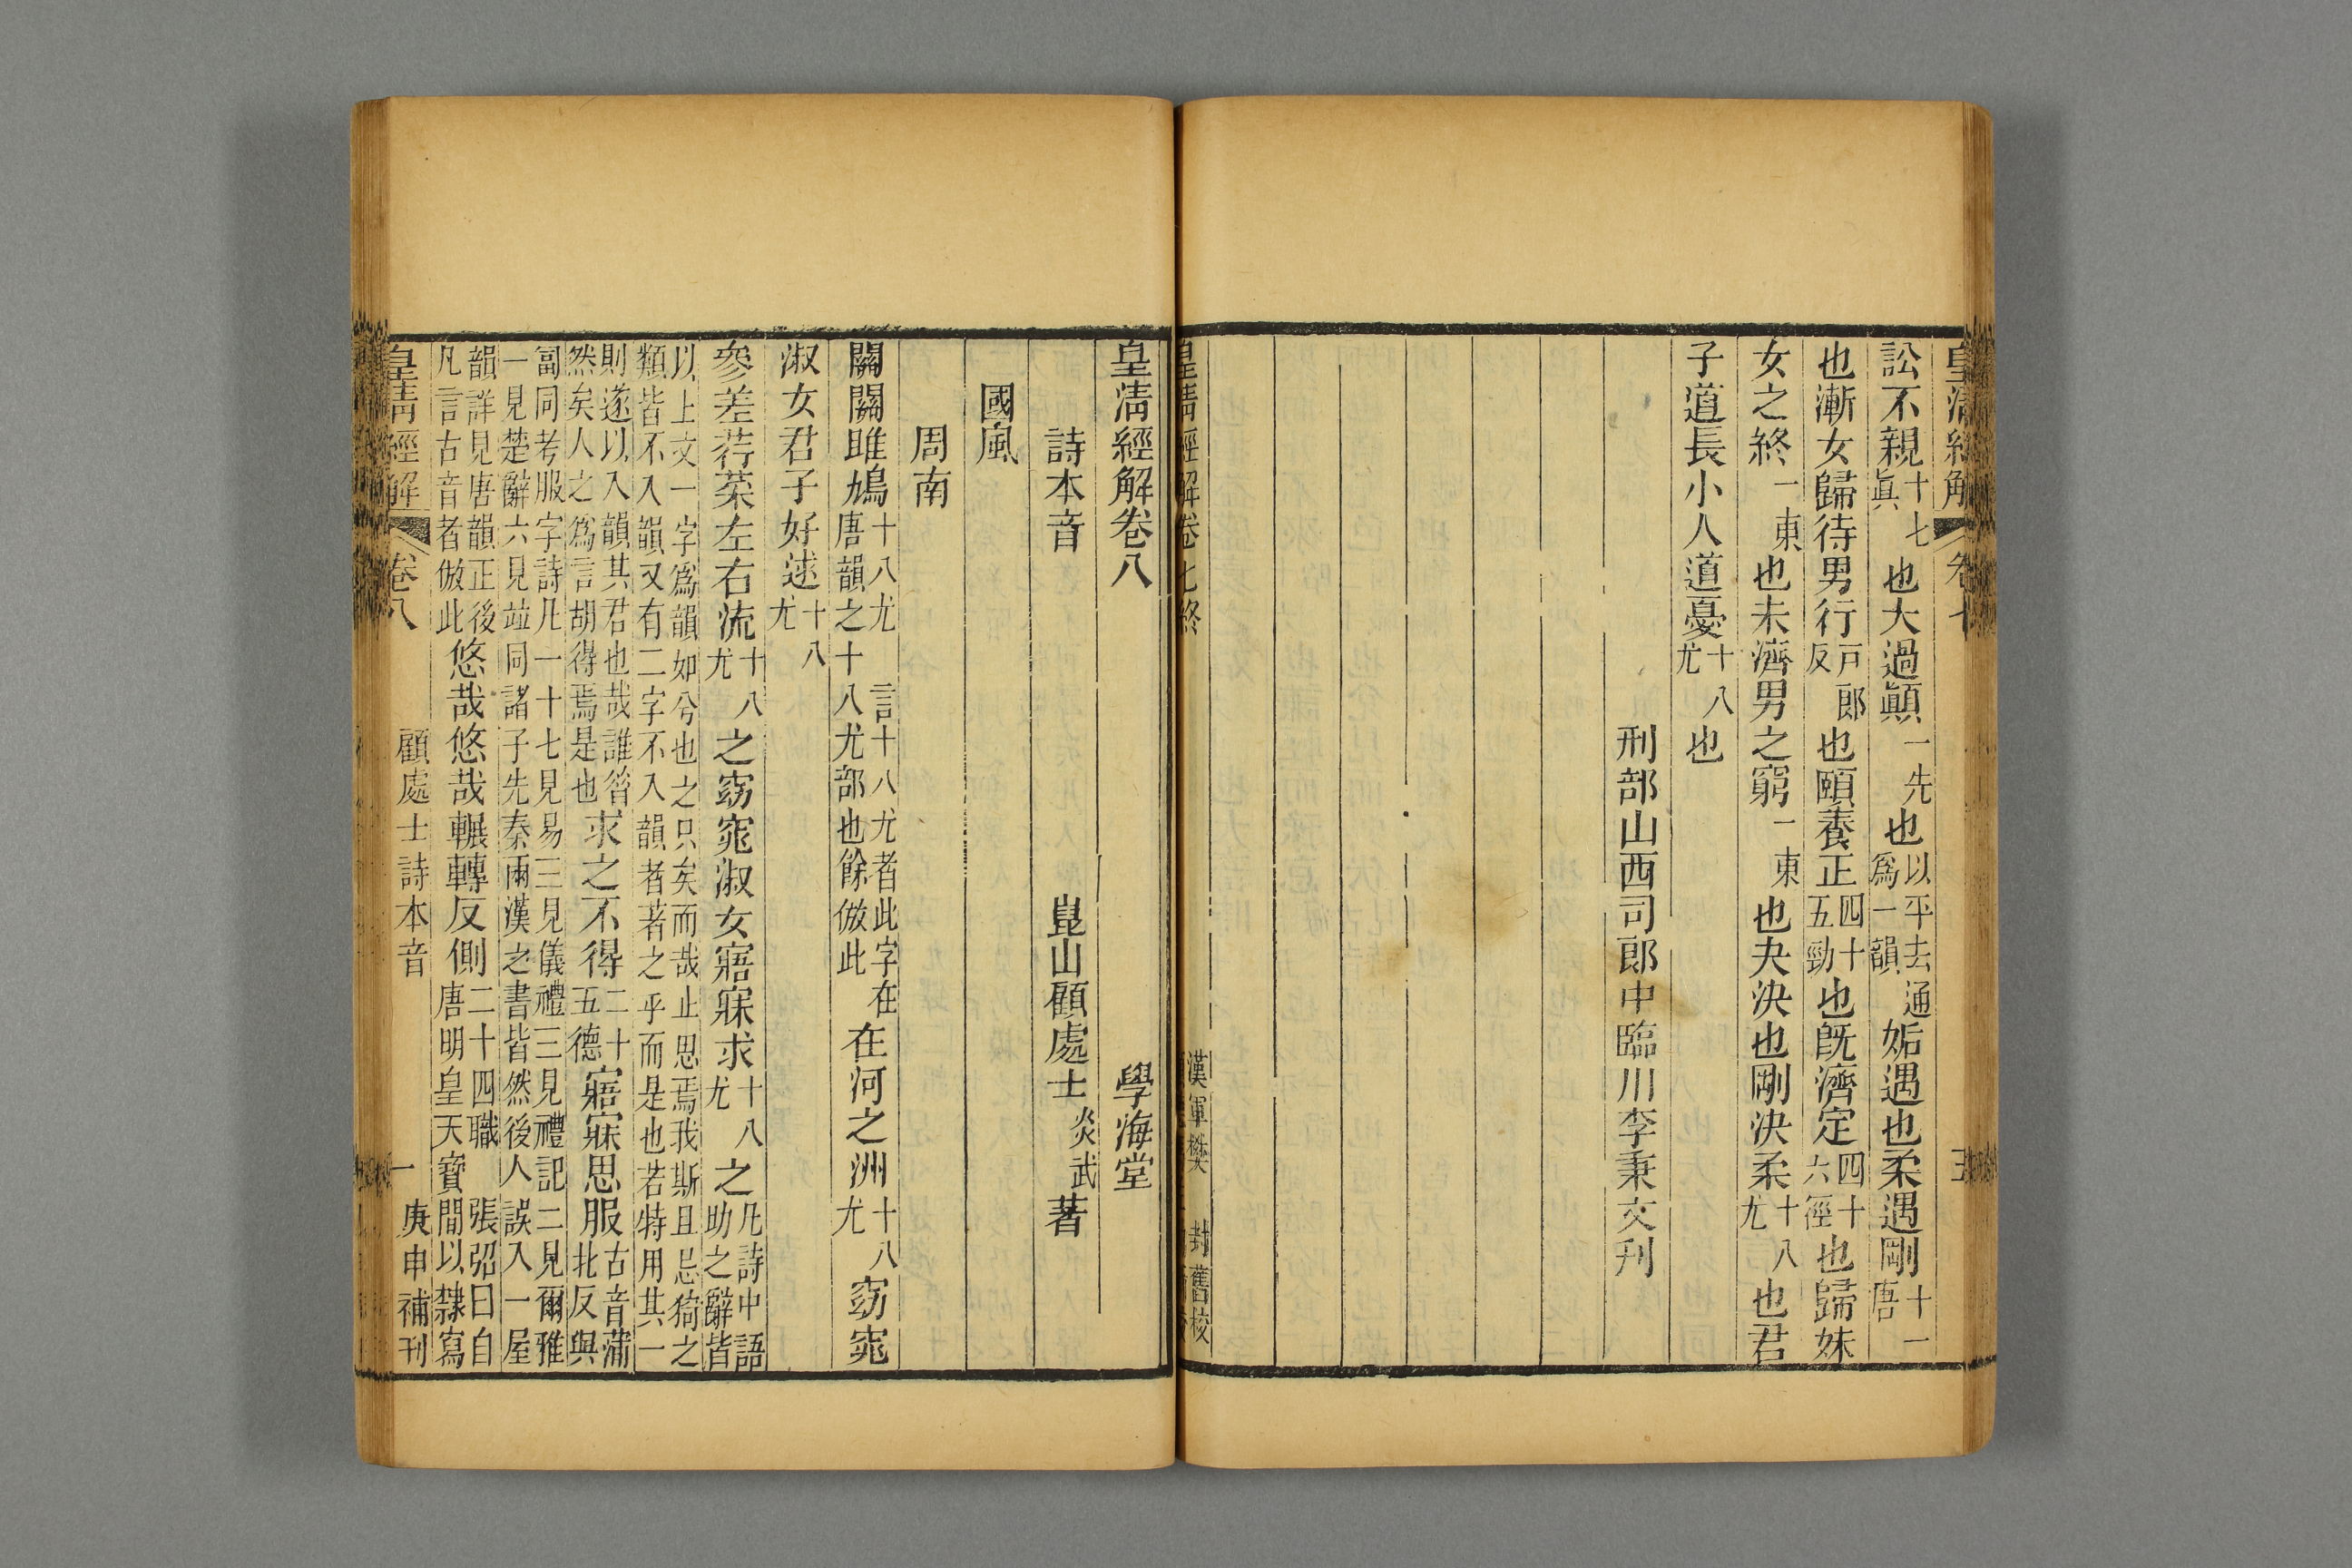 皇清經解 卷七 五
訟不親十七眞也大過顚一先也以平去通爲一韻姤遇也柔遇剛十一唐
也漸女歸待男行戸郎反也頤養正四十五勁也旣濟定四十六徑也歸妹
女之終一東也未濟男之窮一東也夬決也剛決柔十八尤也君
子道長小人道憂十八尤也
刑部山西司郎中臨川李秉文刊
皇清經解卷七終
漢軍樊封舊校
皇清經解卷八 學海堂
詩本音 崑山顧處士炎武著
國風
周南
關關雎鳩十八尤 言十八尤者此字在唐韻之十八尤部也餘倣此在河之洲十八尤窈窕
淑女君子好逑十八尤
參差荇菜左右流十八尤之窈窕淑女寤寐求十八尤之凡詩中語助之辭皆
以上文一字爲韻如兮也之只矣而哉止思焉我斯且忌猗之
類皆不入韻又有二字不入韻者著之乎而是也若特用其一
則遂以入韻其君也哉誰昔然矣人之爲言胡得焉是也求之不得二十五德寤寐思服古音蒲北反與
匐同考服字詩凡一十七見易三見儀禮三見禮記二見爾雅
一見楚辭六見竝同諸子先秦兩漢之書皆然後人誤入一屋
韻詳見唐韻正後凡言古音者倣此悠哉悠哉輾轉反側二十四職 張弨曰自唐明皇天寶閒以隸寫
皇清經解 卷八 顧處士詩本音 一 庚申補刊